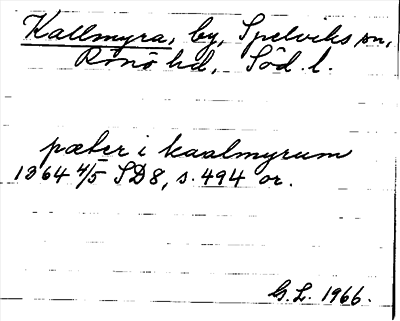 Kallmyra, by, Spelviks sn,
Rönö hd, Söd. l.
pæter i kaalmyrum
1364 4/5 SD8, s. 494 or.
G.L. 1966.